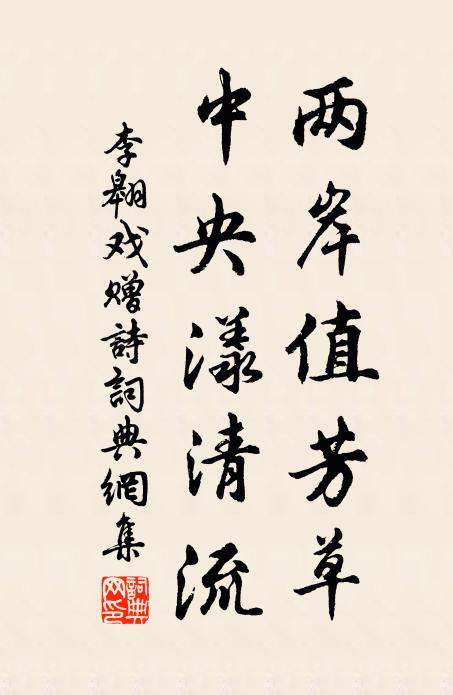 两岸值芳草
中央漾清流
李翱戏赠詩詞典網集
詞典网印